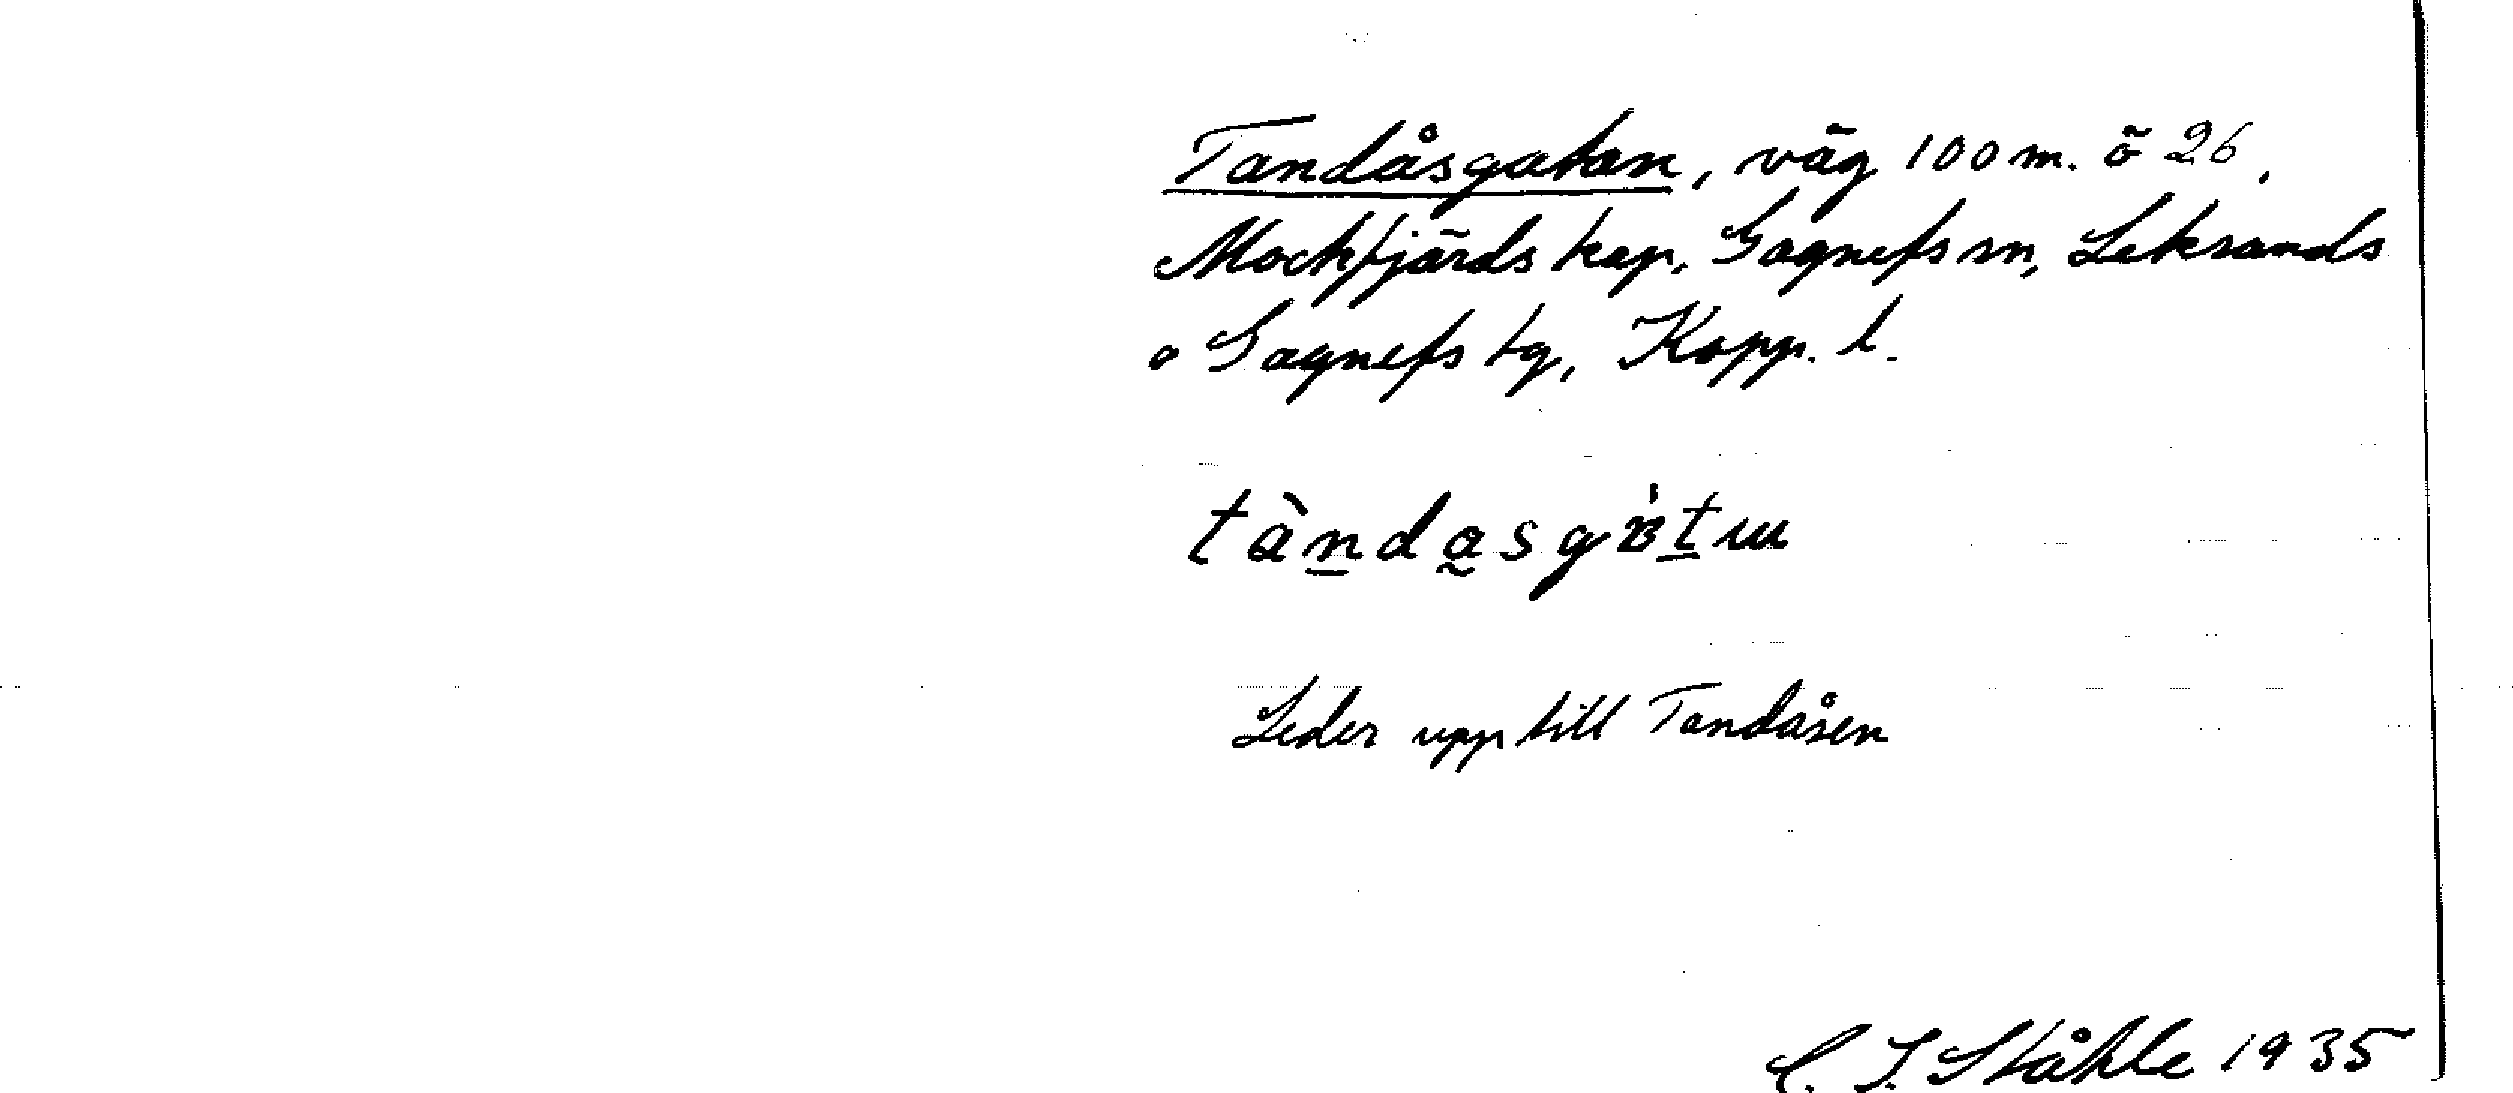 Tandåsgatan, väg 100 m. ö 26,
Mockfjärds kap, Gagnefs sn, Leksands
o Gagnefs tg, Kopp. l.
Leder upp till Tandåsen
C. I. Ståhle 1935